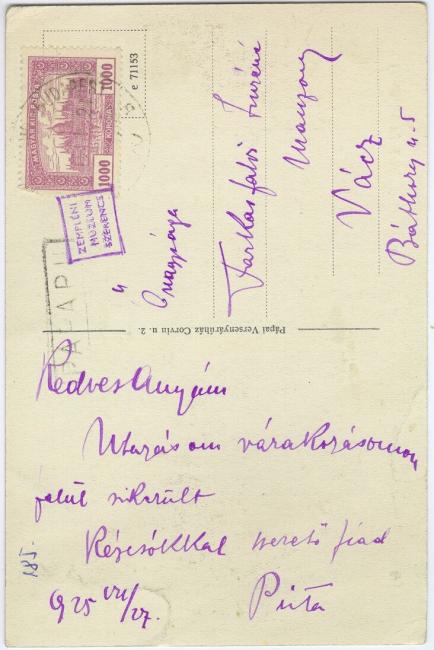 MAGYAR KIR. POSTA
1000 1000
KORONA
BUDAPEST
e 71153
ZEMPLÉNI
MÚZEUM
SZERENCS
Ő nagysága
Farkasfalvi Imréné
Vácz
Báthory u. 5
Pápai Versenyáruház Corvin u. 2.
Kedves Anyám
Utazásom várakozásomon
felül sikerült
Kézcsókkal szerető fiad
Pista
925 VII/27.
185.